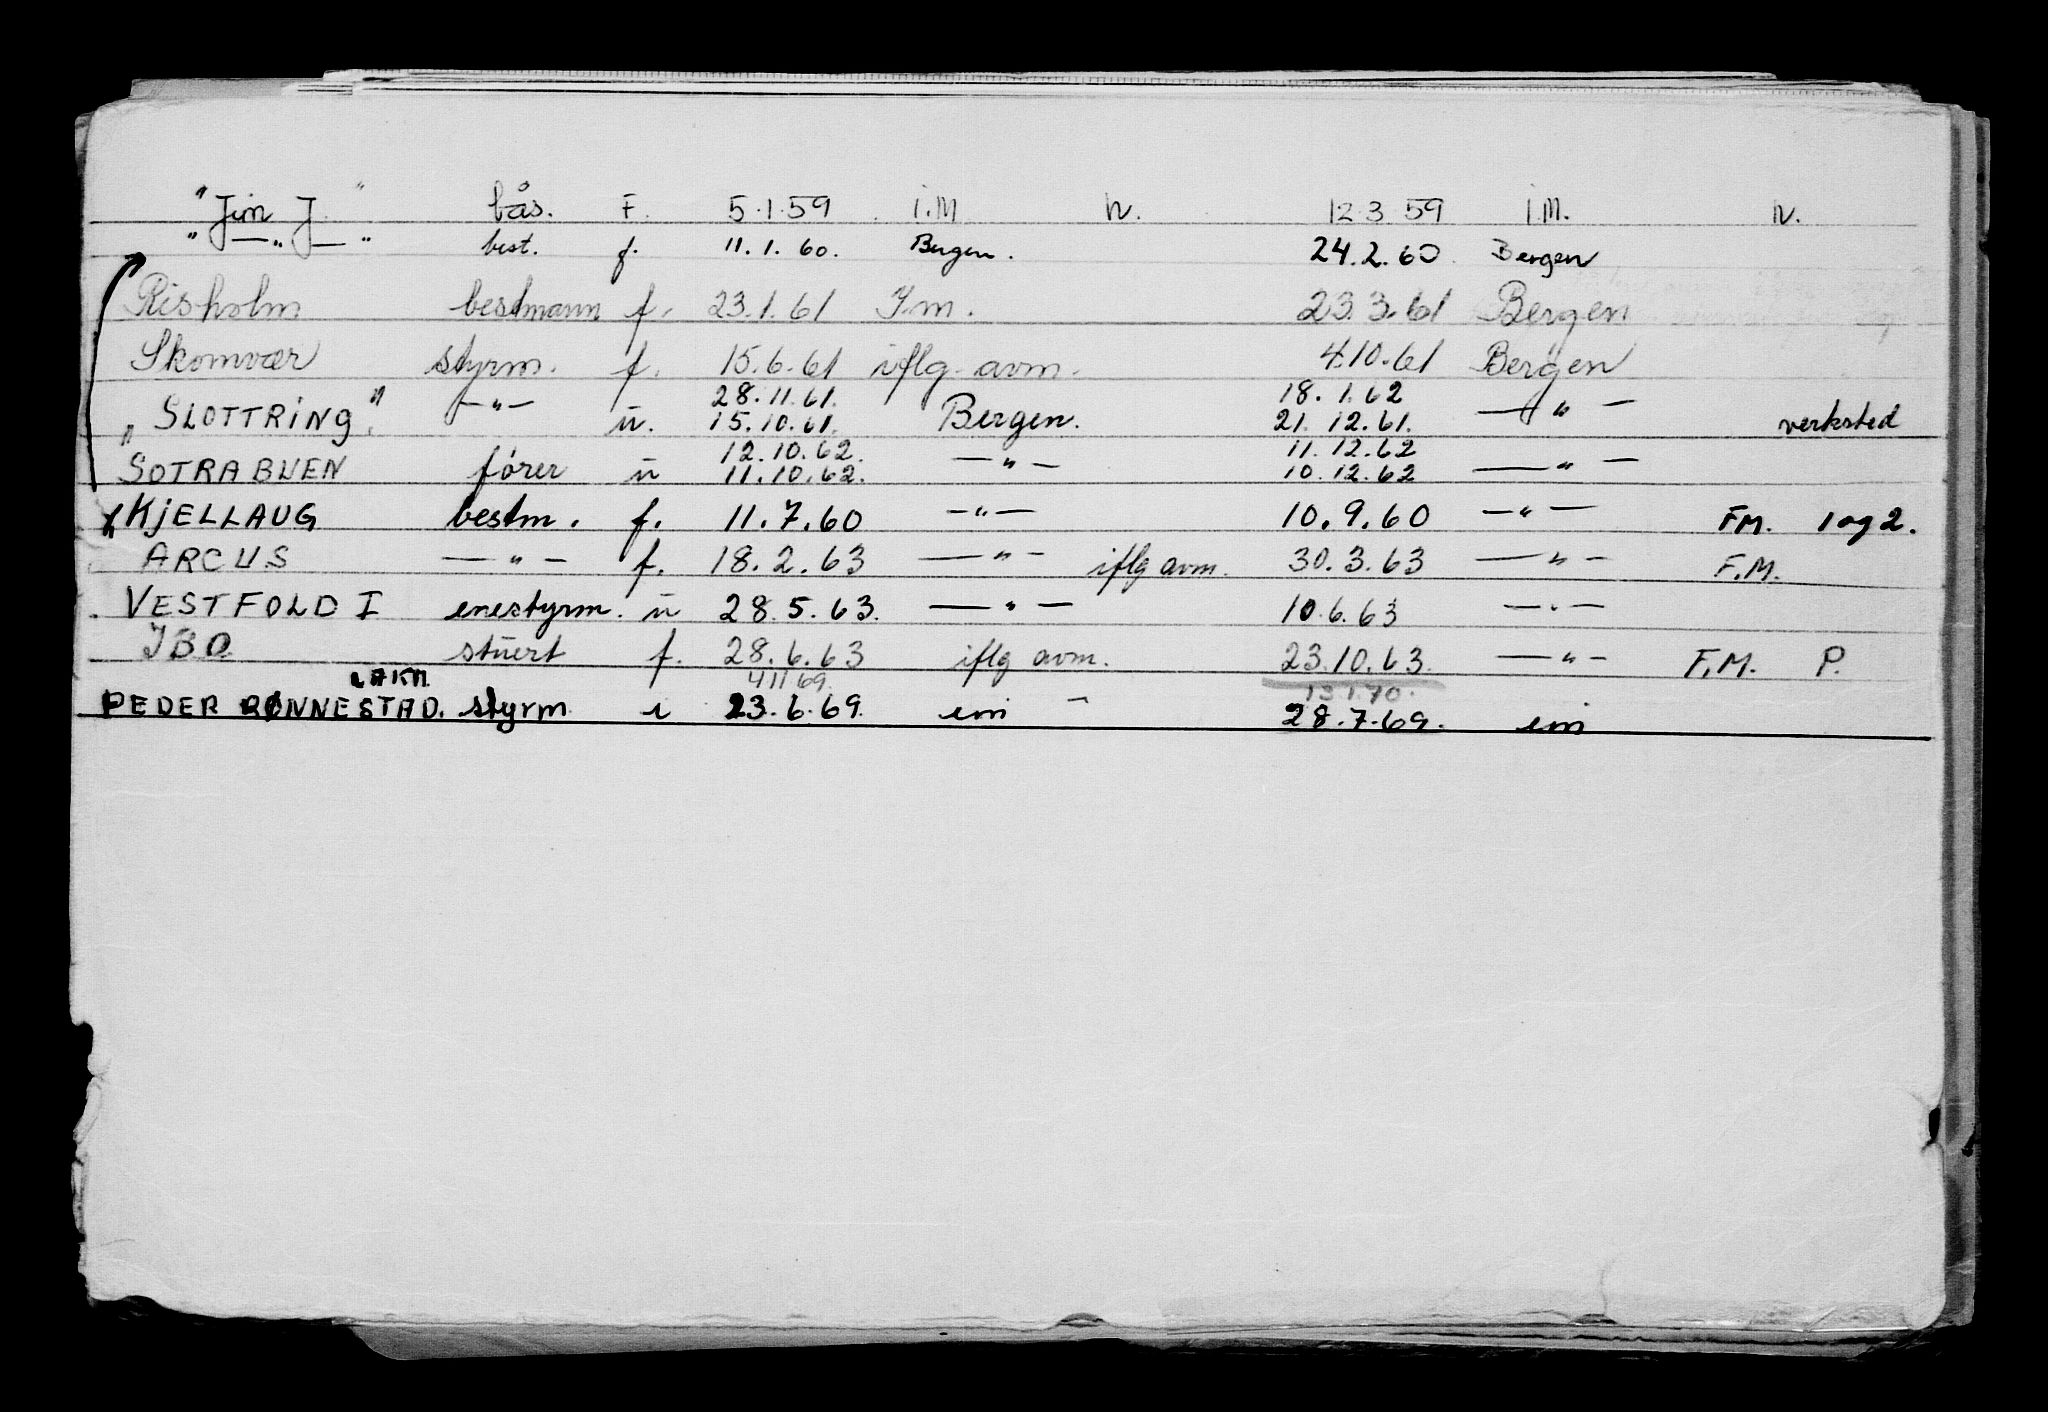 "Jim J." bås. F. 5.1.59 i.M N. 12.3.59 i.M. N.
" —"— " best. f. 11.1.60. Bergen. 24.2.60 Bergen
Risholm bestmann f. 23.1.61 I.m. 23.3.61 Bergen
Skomvær styrm. f. 15.6.61 iflg. avm. 4.10.61 Bergen
28.11.61. 18.1.62
"SLOTTRING" —"— u. 15.10.61. Bergen. 21.12.61. —"— verksted
12.10.62. 11.12.62
SOTRABUEN fører u 11.10.62. —"— 10.12.62 —"—
KJELLAUG bestm. f. 11.7.60 —"— 10.9.60 —"— FM. 1 og 2.
ARCUS —"— f. 18.2.63 —"— iflg avm. 30.3.63 —"— F.M.
VESTFOLD I enestyrm. u 28.5.63. —"— 10.6.63 —"—
IBO stuert f. 28.6.63 iflg avm. 23.10.63. —"— F.M. P.
4/11 69. 13.1.70.
PEDER RØNNESTAD. styrm. 23.6.69. 28.7.69.